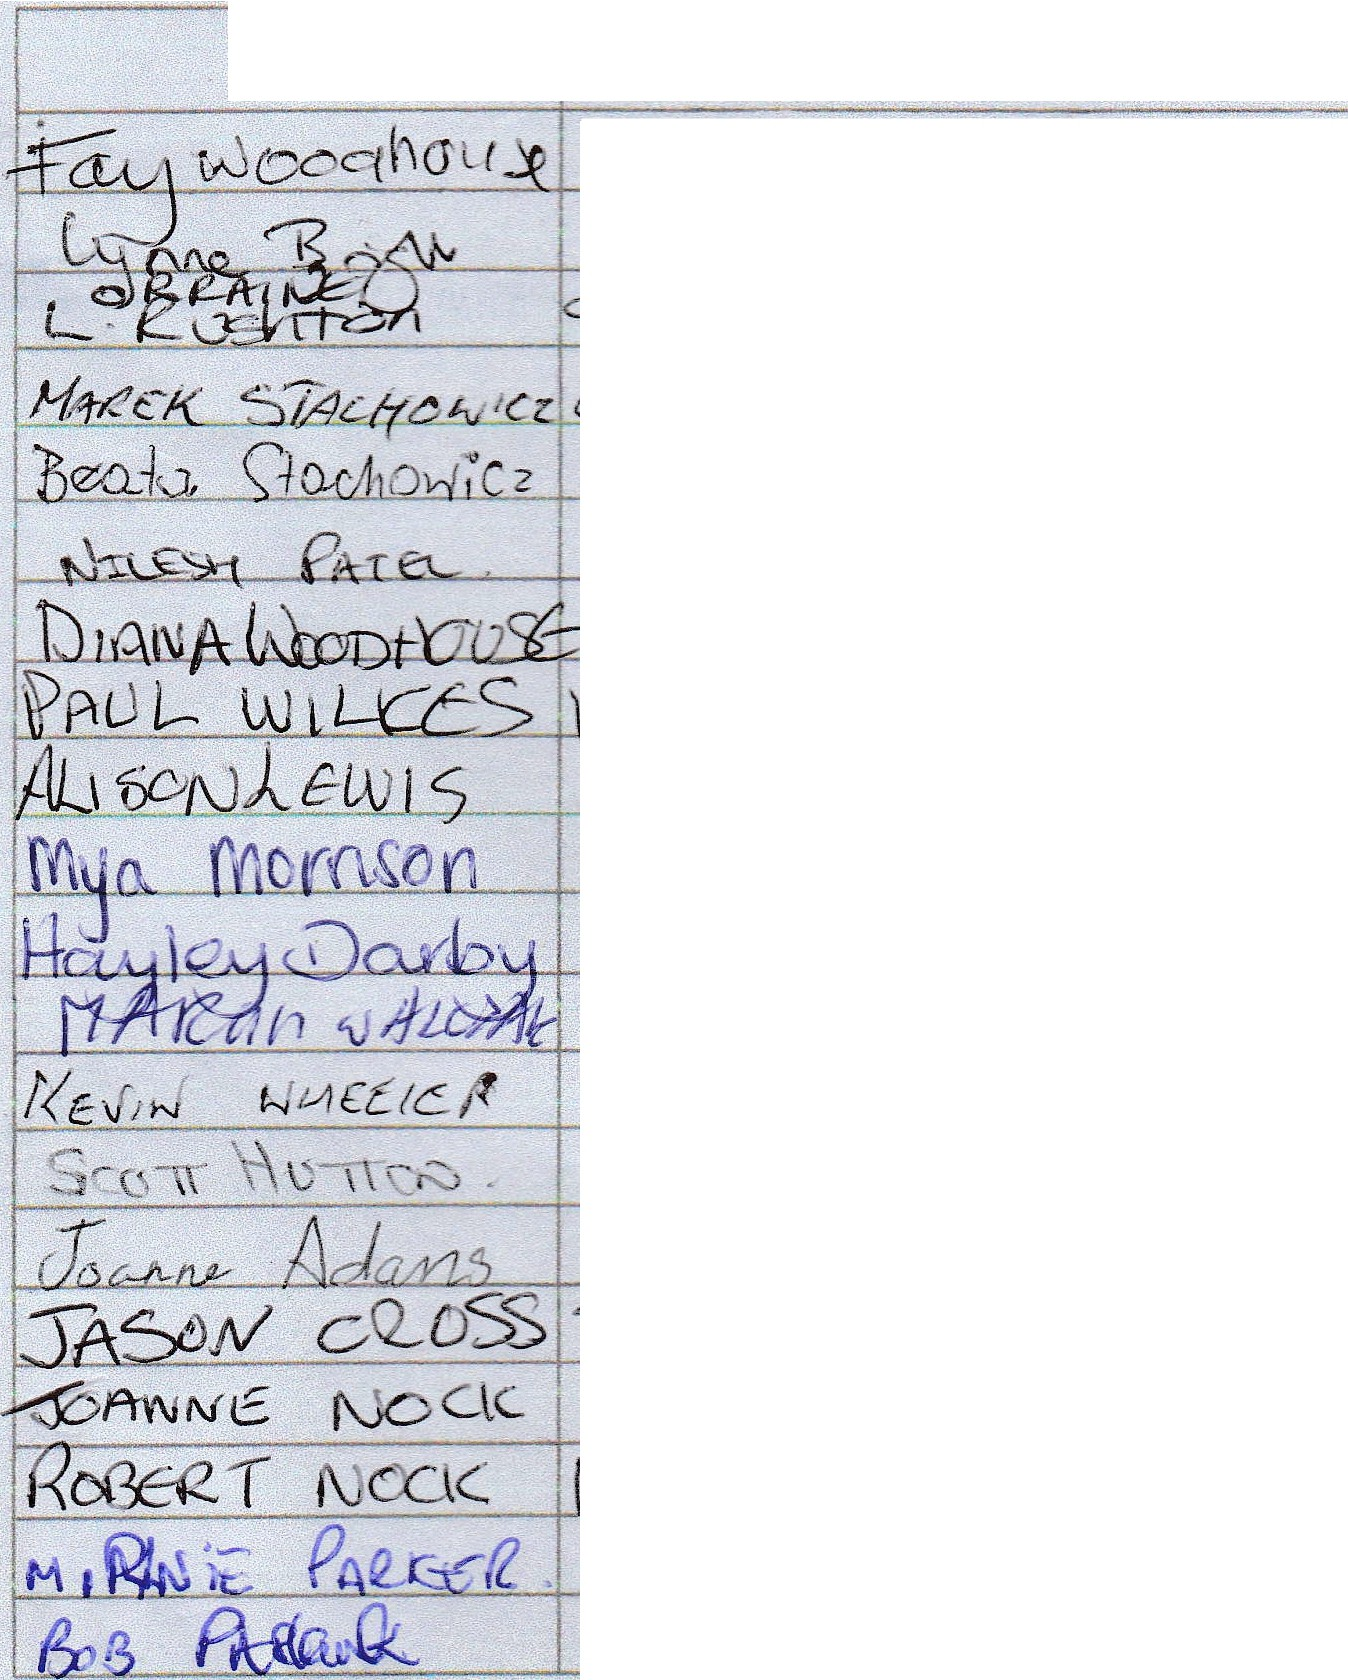 Fay Woodhouse
Lynne
LORRAINE
L. RUSHTON
MAREK STACHOWICZ
Beata Stachowicz
NILESH PATEL.
DIANA WOODHOUSE
PAUL WILKES
ALISON LEWIS
Mya Morrison
Hayley Darby
MARCIN WALCZAK
KEVIN WHEELER
SCOTT HUTTON.
Joanne Adams
JASON CROSS
JOANNE NOCK
ROBERT NOCK
PARKER.
BOB